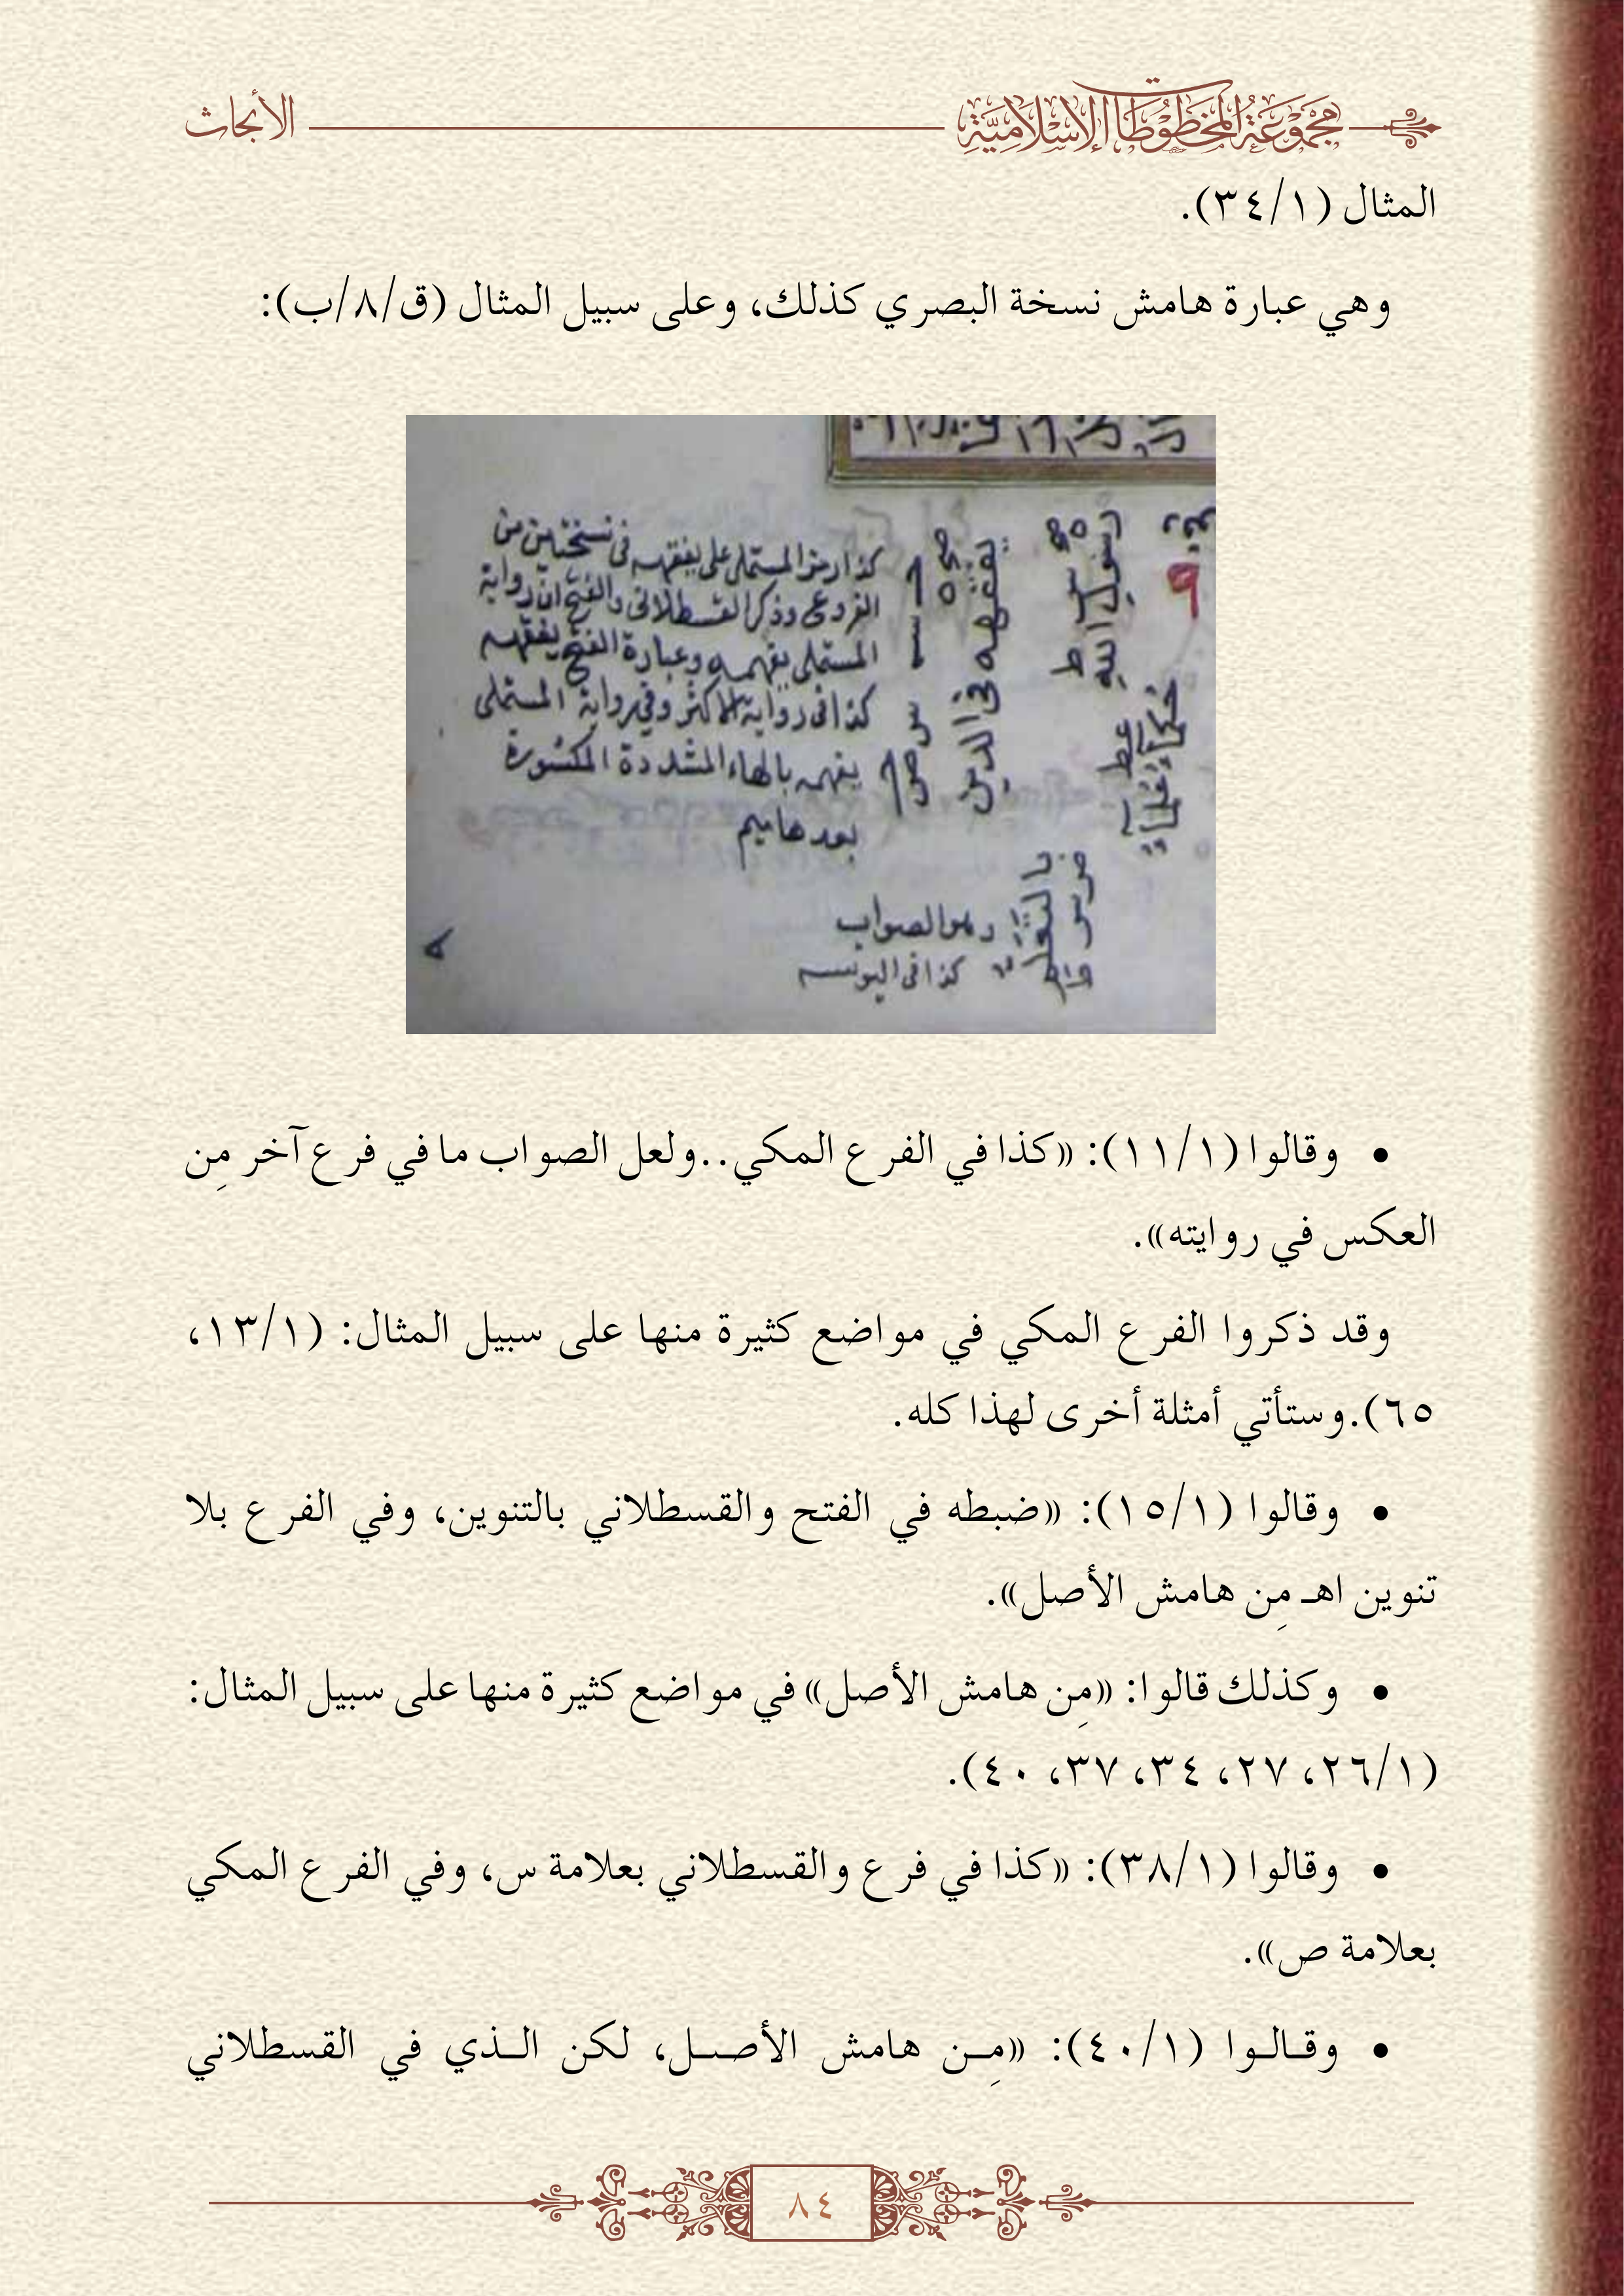 مجموعة المخطوطات الإسلامية
الأبحاث
المثال (٣٤/١).
وهي عبارة هامش نسخة البصري كذلك، وعلى سبيل المثال (ق/٨/ب):
كذا رمز المستملى على يفقهه فى نسختين من
الفروع وذكر القسطلانى والفتح ان رواية
المستملى يفهمه وعبارة الفتح يفقهه
كذا فى رواية الاكثر وفي رواية المستملى
يفهمه بالهاء المشددة المكسورة
بعدها ميم
يفقهه فى الدين
رسول الله
حكماء علماء
بالتعلم
وهو الصواب
كذا فى
• وقالوا (١١/١): «كذا في الفرع المكي..ولعل الصواب ما في فرع آخر مِن
العكس في روايته».
وقد ذكروا الفرع المكي في مواضع كثيرة منها على سبيل المثال: (١٣/١،
٦٥).وستأتي أمثلة أخرى لهذا كله.
• وقالوا (١٥/١): «ضبطه في الفتح والقسطلاني بالتنوين، وفي الفرع بلا
تنوين اهـ مِن هامش الأصل».
• وكذلك قالوا: «مِن هامش الأصل» في مواضع كثيرة منها على سبيل المثال:
(٢٦/١، ٢٧، ٣٤، ٣٧، ٤٠).
• وقالوا (٣٨/١): «كذا في فرع والقسطلاني بعلامة س، وفي الفرع المكي
بعلامة ص».
• وقالوا (٤٠/١): «مِن هامش الأصل، لكن الذي في القسطلاني
٨٤